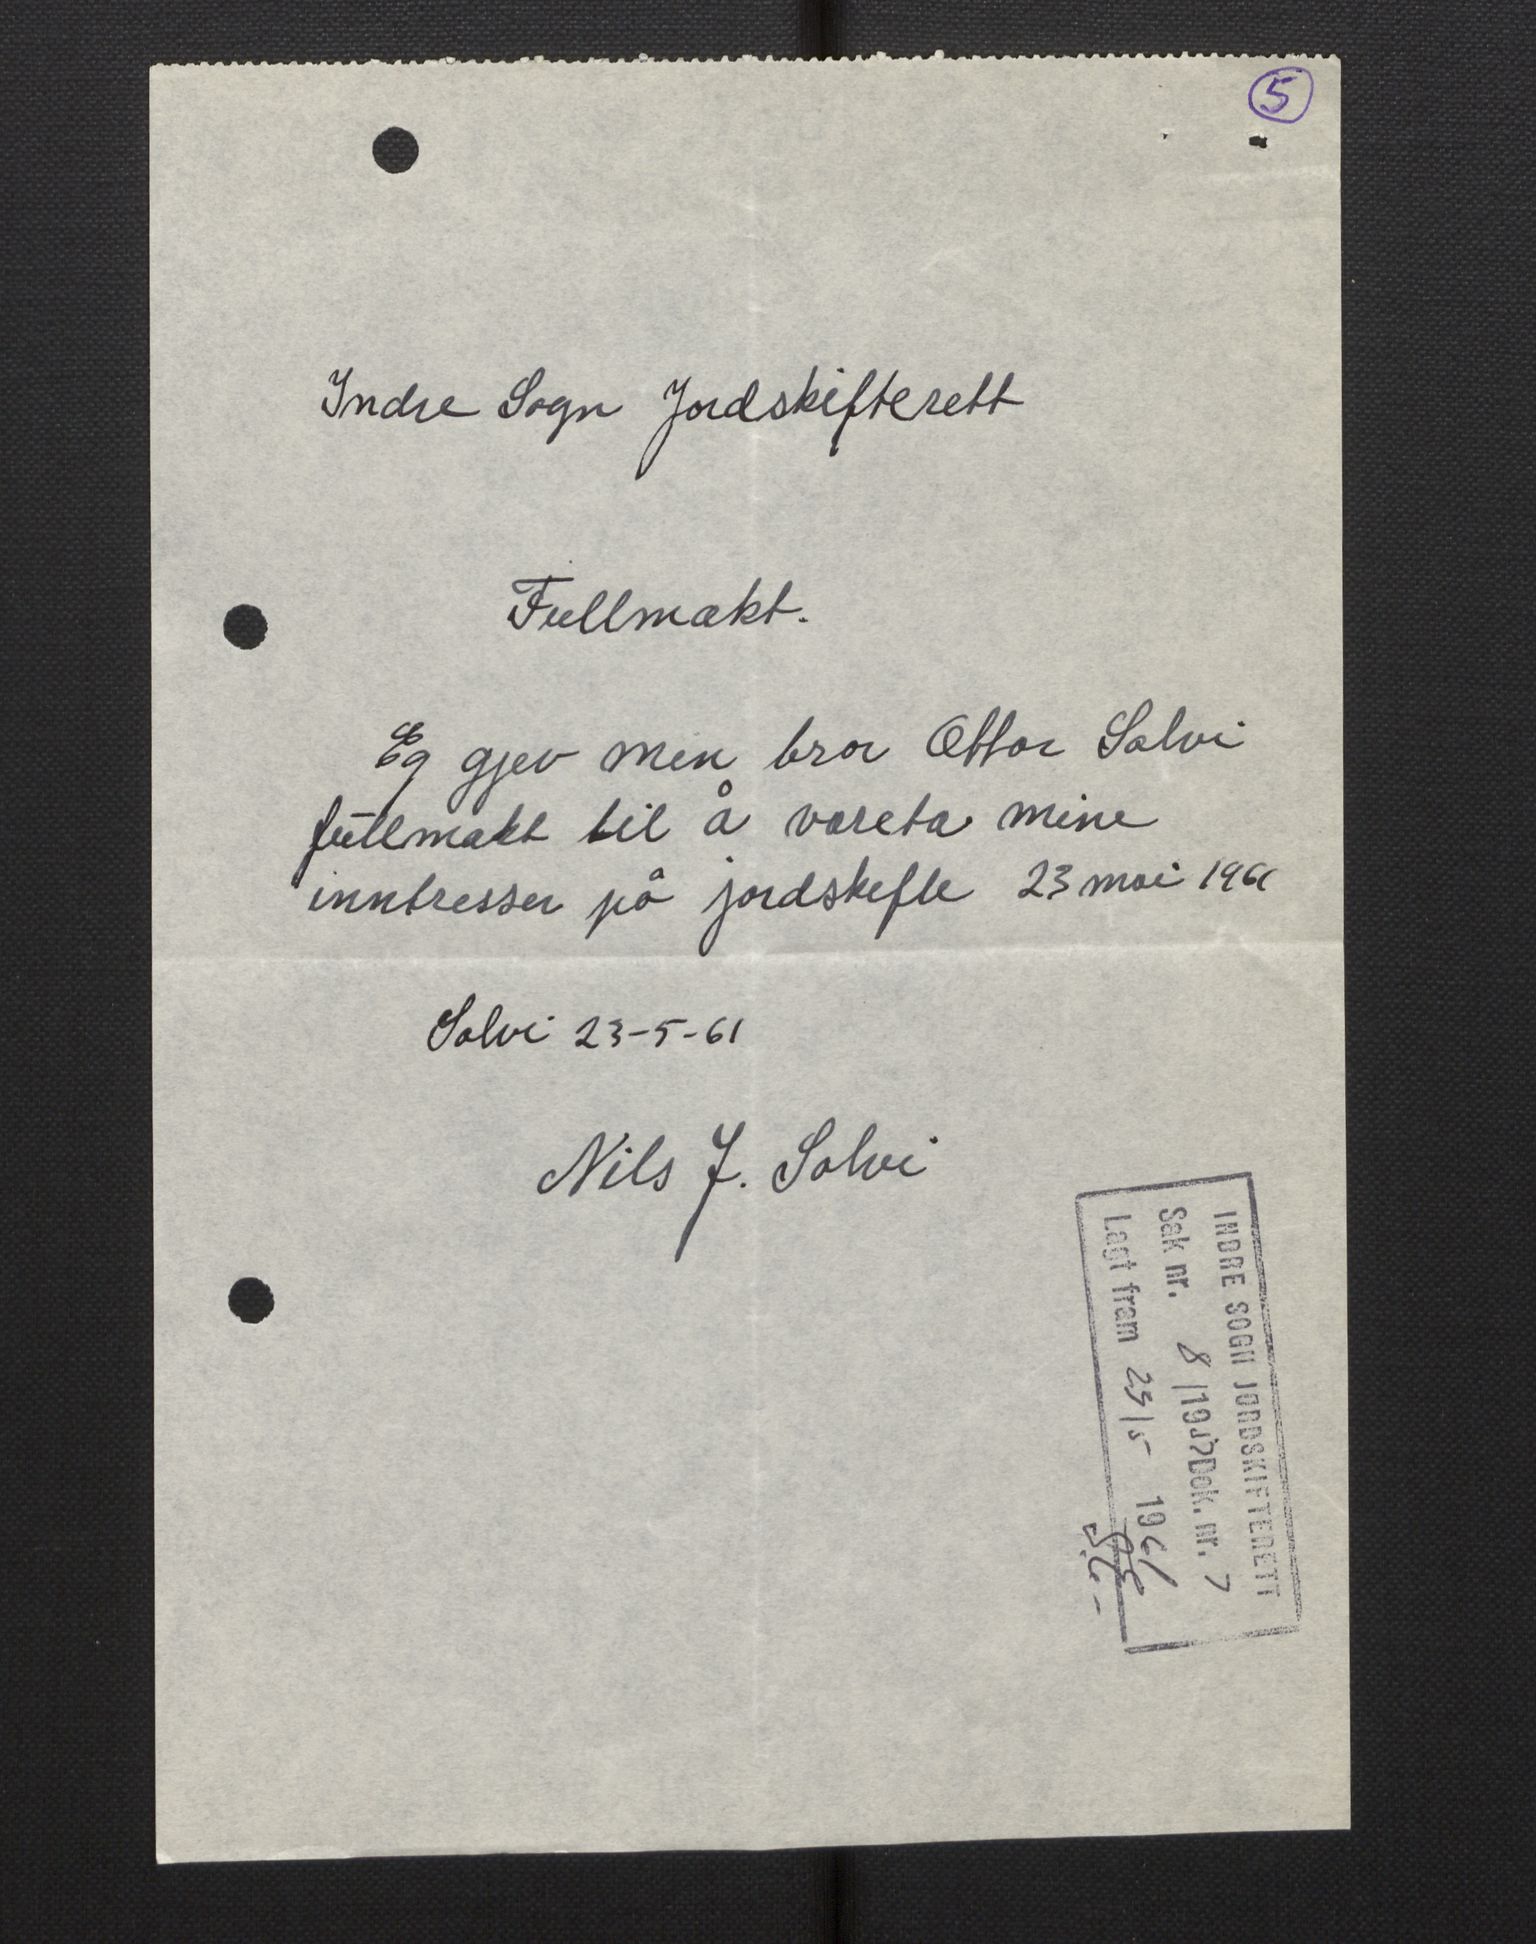 5
Indre Sogn Jordskifterett
Fullmakt.
Eg gjev min bror Ottar Salvi
fullmakt til å vareta mine
inntresser på jordskifte 23 mai 1961
Salvi 23-5-61
Nils J. Salvi
INDRE SOGN JORDSKIFTERETT
Sak nr. 8/19 Dok. nr. 7
Lagt fram 23/5 1961